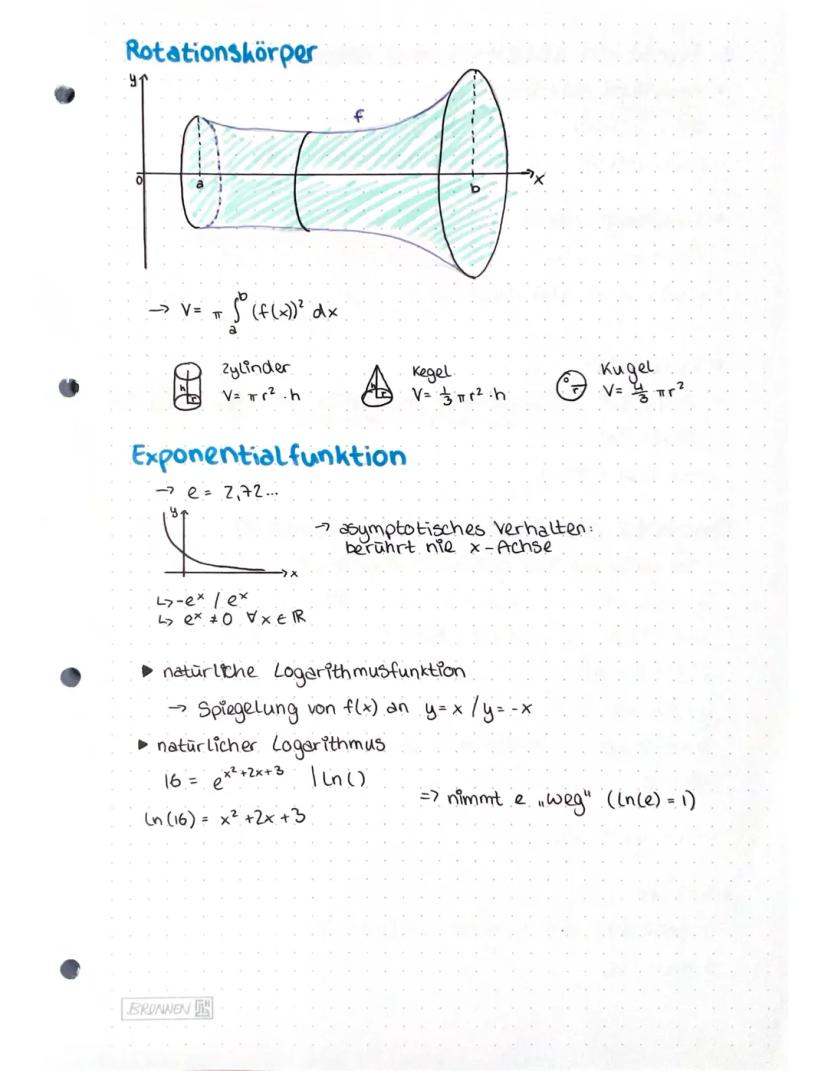 Rotationskörper
y
f
0 a b x
→ V= π ∫ₐᵇ (f(x))² dx
Zylinder
h r
V= π r² · h
Kegel
h r
V= 1/3 π r² · h
Kugel
r
V= 4/3 π r²
Exponentialfunktion
→ e = 2,72...
y
x
→ asymptotisches Verhalten:
berührt nie x-Achse
↳ -eˣ / eˣ
↳ eˣ ≠ 0 ∀ x ∈ ℝ
▶ natürliche Logarithmusfunktion
→ Spiegelung von f(x) an y = x / y = -x
▶ natürlicher Logarithmus
16 = e^(x²+2x+3) | ln()
ln(16) = x² + 2x + 3
=> nimmt e „weg" (ln(e) = 1)
BRUNNEN